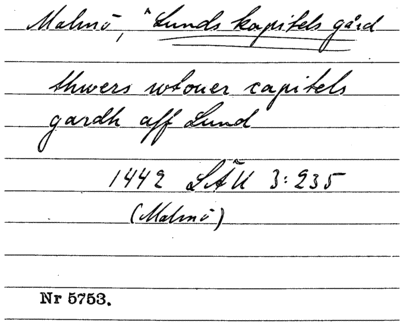 Malmö, "Lunds kapitels gård
thwers wtouer capitels
gardh aff Lund
1442 LÄU 3:235
(Malmö)
Nr 5753.